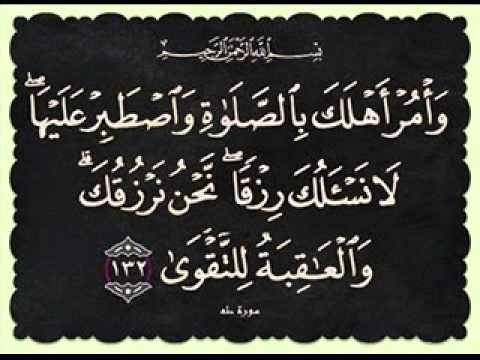 بِسْمِ اللَّهِ الرَّحْمَٰنِ الرَّحِيمِ
وَأْمُرْ أَهْلَكَ بِٱلصَّلَوٰةِ وَٱصْطَبِرْ عَلَيْهَا ۖ
لَا نَسْـَٔلُكَ رِزْقًا ۖ نَّحْنُ نَرْزُقُكَ ۗ
وَٱلْعَـٰقِبَةُ لِلتَّقْوَىٰ ١٣٢
سورة طه